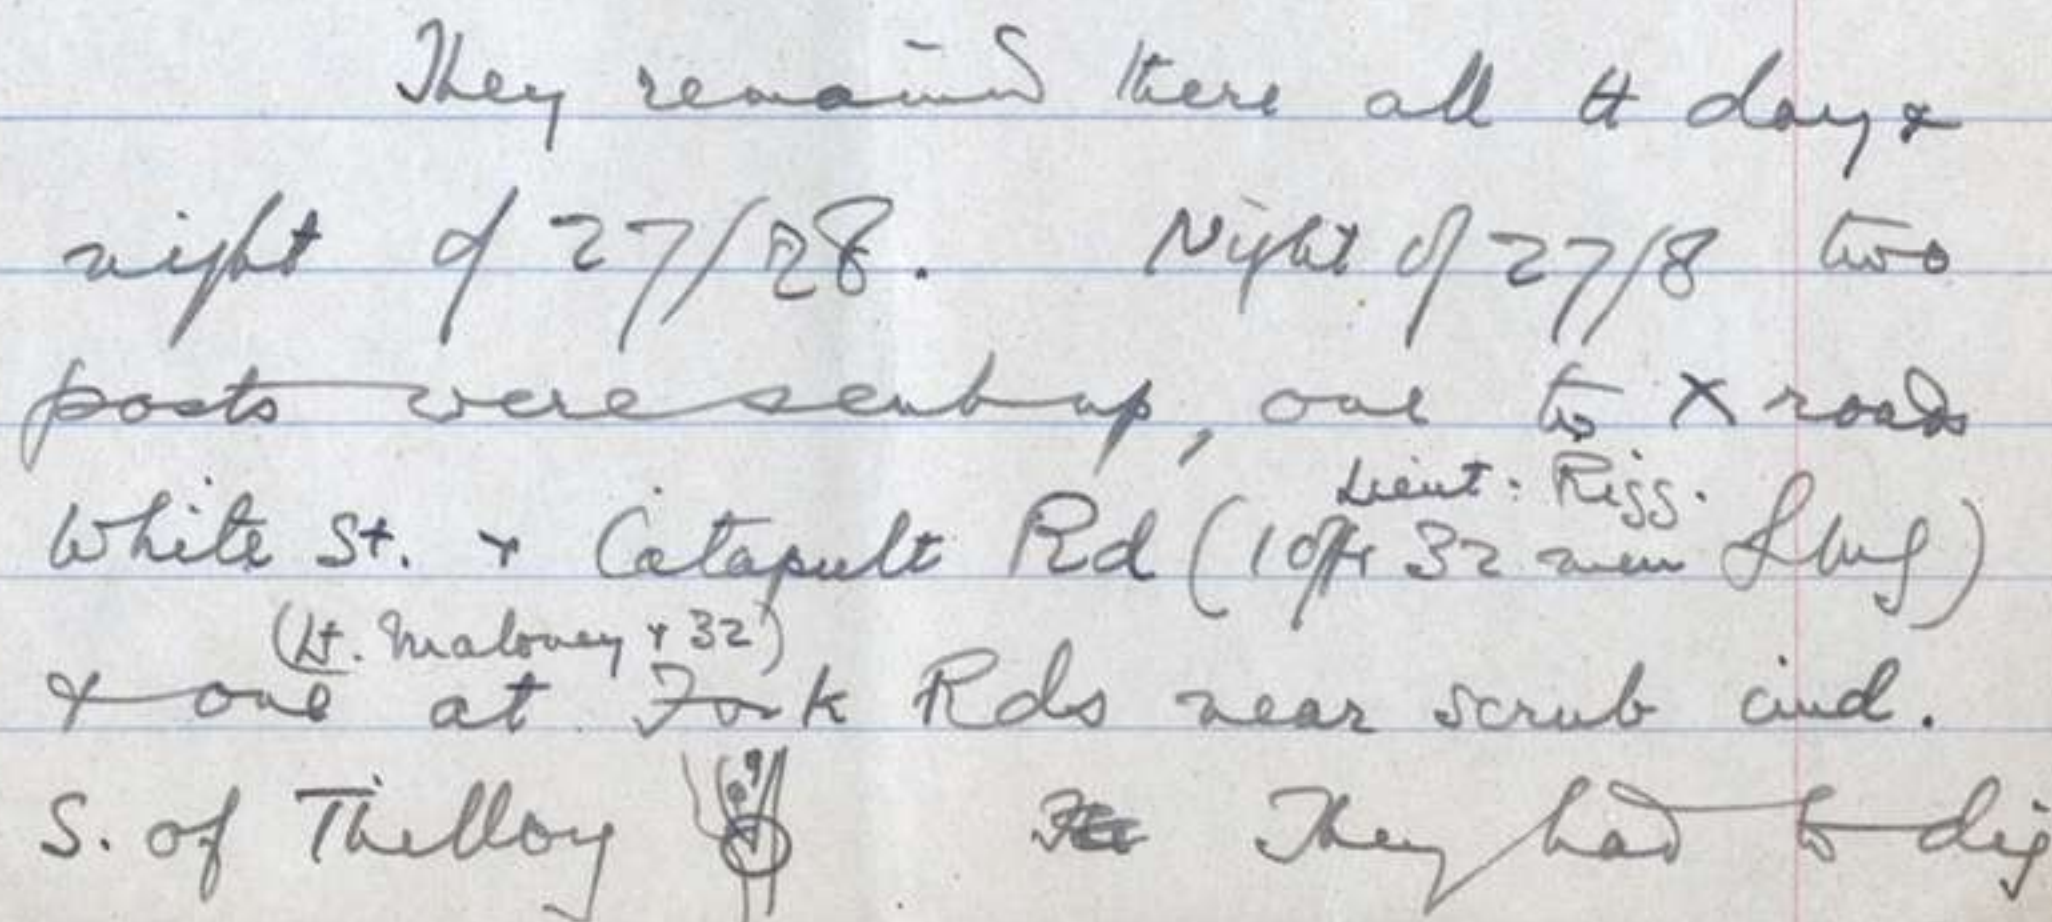 They remained there all tt day &
night of 27/28. Night of 27/8 two
posts were sent up, one to X roads
Lieut. Rigg.
White St. & Catapult Rd (1 offr 32 men
(Lt. Maloney & 32)
& one at Fork Rds near scrub
S. of Thilloy They had to dig